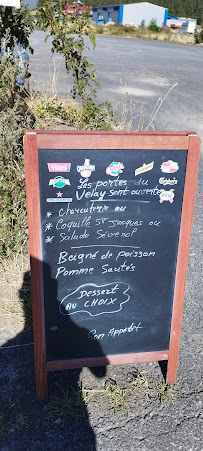 Les portes du
Velay sont ouvertes
* Charcuterie ou
* Coquille St Jacques ou
* Salade Sévenol
Beigné de poisson
Pomme Sautés
Dessert
AU CHOIX
Bon Appétit